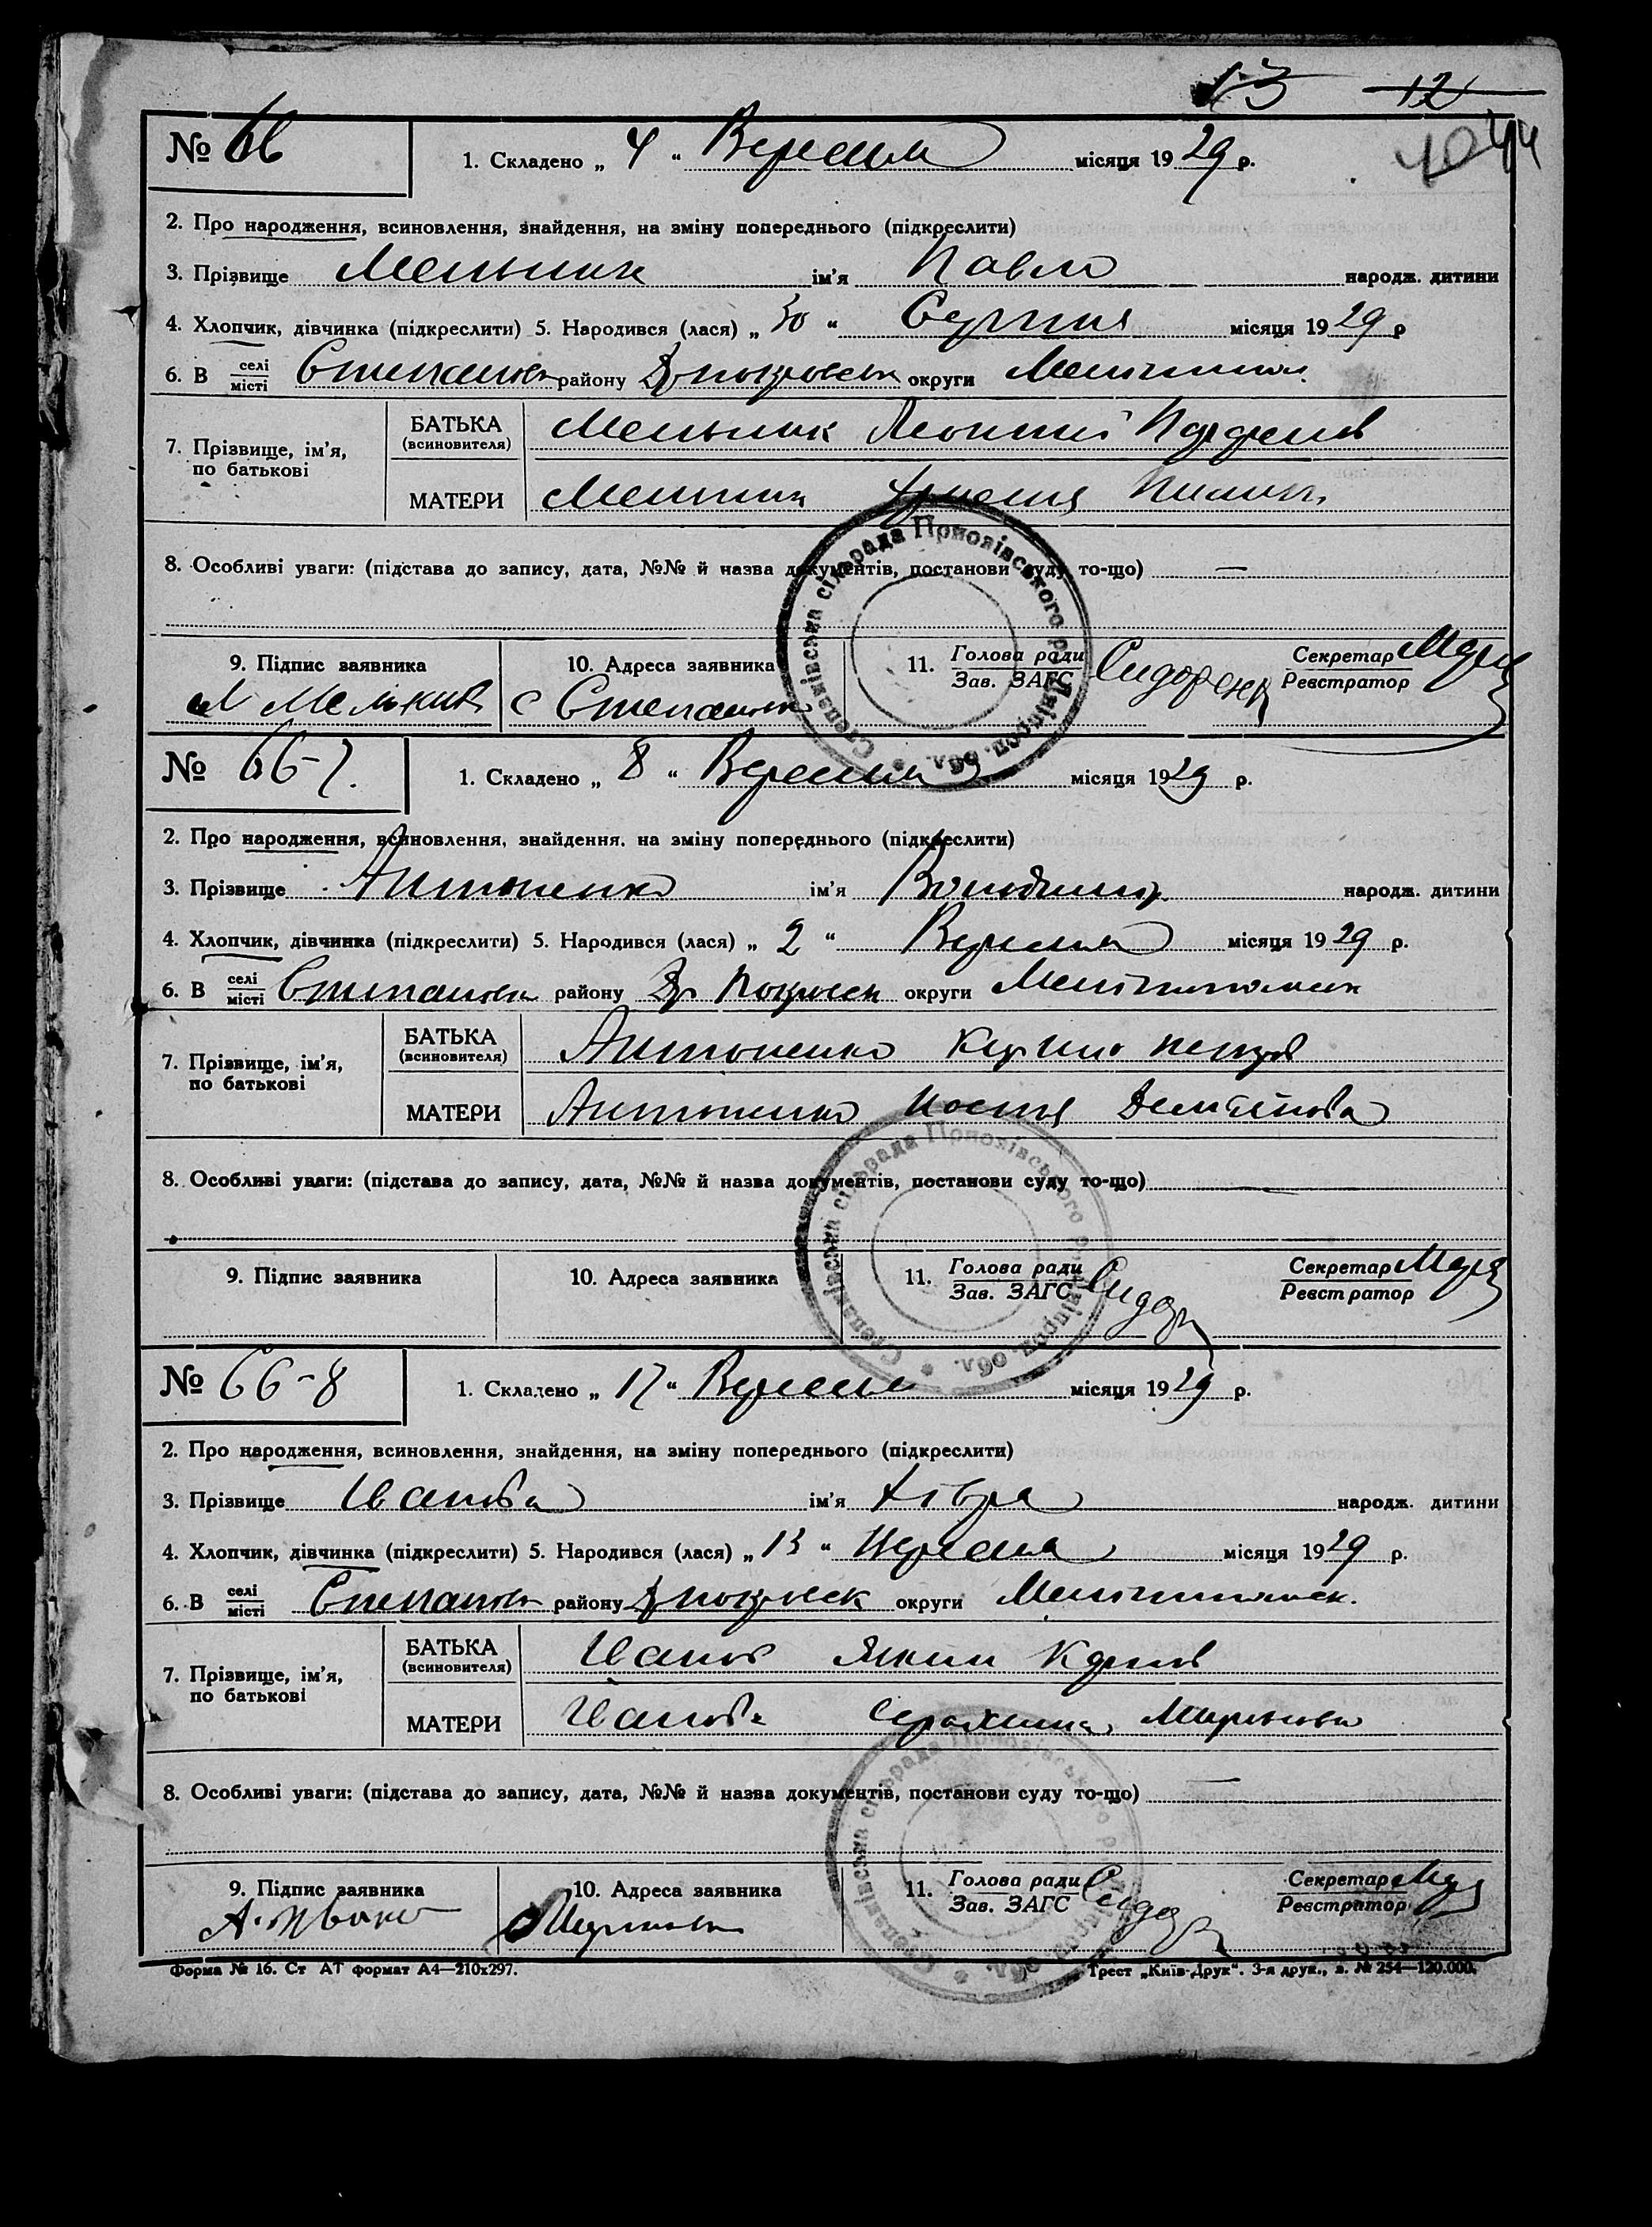 13 12
№ 66 1. Складено „ 4 “ Вересня місяця 1929 р.
2. Про народження, всиновлення, знайдення, на зміну попереднього (підкреслити)
3. Прізвище Мельник ім'я Павло народж. дитини
4. Хлопчик, дівчинка (підкреслити) 5. Народився (лася) „ 30 “ Серпня місяця 1929 р
6. В селі місті Степановк району округи
7. Прізвище, ім'я, по батькові
БАТЬКА (всиновителя) Мельник
МАТЕРИ Мельник
8. Особливі уваги: (підстава до запису, дата, №№ й назва документів, постанови суду то-що) —
9. Підпис заявника 10. Адреса заявника 11. Голова ради Зав. ЗАГС Секретар Реєстратор
Мельник с Степановка Сидоренк
Степанівська сільрада Приозівського р. Дніпроп. обл.
№ 66-7. 1. Складено „ 8 “ Вересня місяця 1929 р.
2. Про народження, всиновлення, знайдення. на зміну попереднього (підкреслити)
3. Прізвище Антоненко ім'я Володимир народж. дитини
4. Хлопчик, дівчинка (підкреслити) 5. Народився (лася) „ 2 “ Вересня місяця 1929 р.
6. В селі місті Степановк району Покровськ округи Мелітопольск
7. Прізвище, ім'я, по батькові
БАТЬКА (всиновителя) Антоненко Кирило Петров
МАТЕРИ Антоненко Демьянова
8. Особливі уваги: (підстава до запису, дата, №№ й назва документів, постанови суду то-що)
9. Підпис заявника 10. Адреса заявника 11. Голова ради Зав. ЗАГС Секретар Реєстратор
Степанівська сільрада Приозівського р. Дніпроп. обл.
№ 66-8 1. Складено „ 17 “ Вересня місяця 1929 р.
2. Про народження, всиновлення, знайдення, на зміну попереднього (підкреслити)
3. Прізвище Іванова ім'я народж. дитини
4. Хлопчик, дівчинка (підкреслити) 5. Народився (лася) „ 13 “ Вересня місяця 1929 р.
6. В селі місті Степановк району округи Мелітопольск.
7. Прізвище, ім'я, по батькові
БАТЬКА (всиновителя) Іванов Яким
МАТЕРИ Іванова
8. Особливі уваги: (підстава до запису, дата, №№ й назва документів, постанови суду то-що) —
9. Підпис заявника 10. Адреса заявника 11. Голова ради Зав. ЗАГС Секретар Реєстратор
Степанівська сільрада Приозівського р. Дніпроп. обл.
Форма № 16. Ст АТ формат А4—210х297. Трест „Київ-Друк“. 3-я друк., з. № 254—120.000.